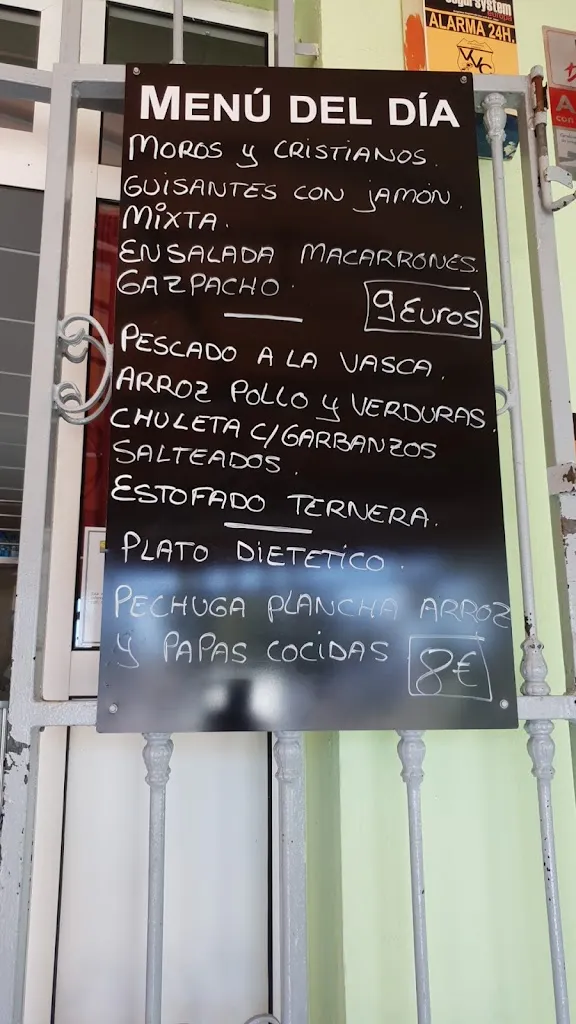 segur system
ALARMA 24H.
MENÚ DEL DÍA
MOROS y CRISTIANOS.
GUISANTES CON JAMÓN.
MIXTA.
ENSALADA MACARRONES.
GAZPACHO.
9 EUROS
PESCADO A LA VASCA.
ARROZ POLLO y VERDURAS.
CHULETA C/GARBANZOS
SALTEADOS.
ESTOFADO TERNERA.
PLATO DIETETICO.
PECHUGA PLANCHA ARROZ
y PAPAS COCIDAS 8€